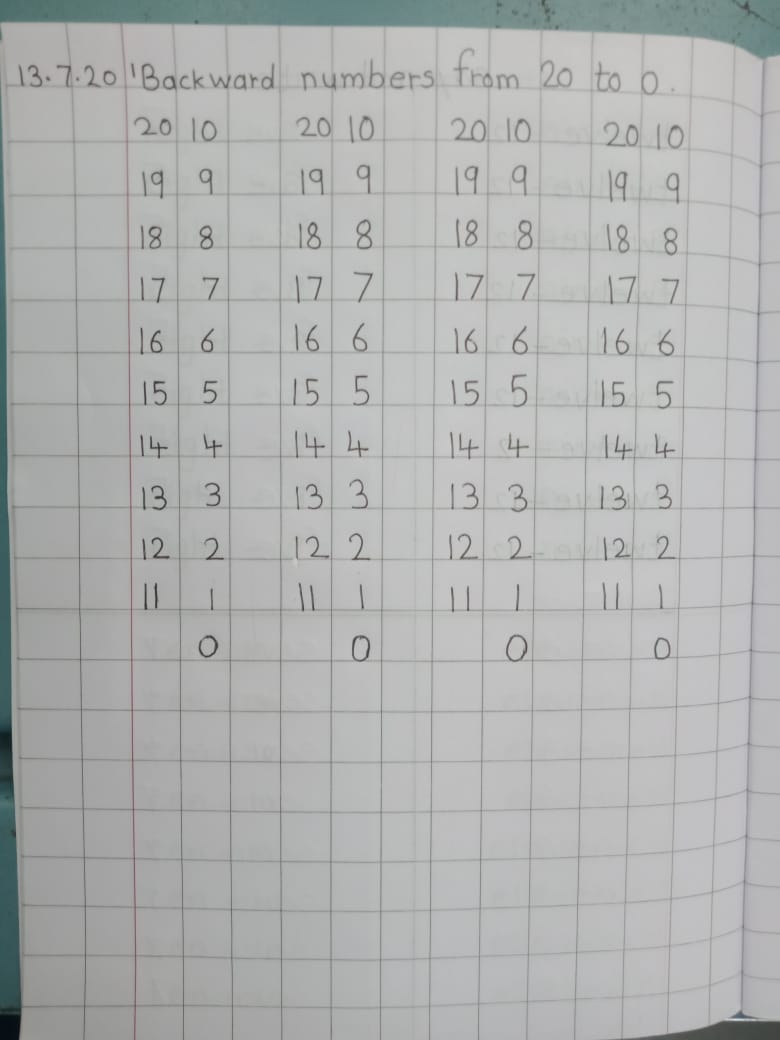 13.7.20 Backward numbers from 20 to 0.
20 10 20 10 20 10 20 10
19 9 19 9 19 9 19 9
18 8 18 8 18 8 18 8
17 7 17 7 17 7 17 7
16 6 16 6 16 6 16 6
15 5 15 5 15 5 15 5
14 4 14 4 14 4 14 4
13 3 13 3 13 3 13 3
12 2 12 2 12 2 12 2
11 1 11 1 11 1 11 1
0 0 0 0